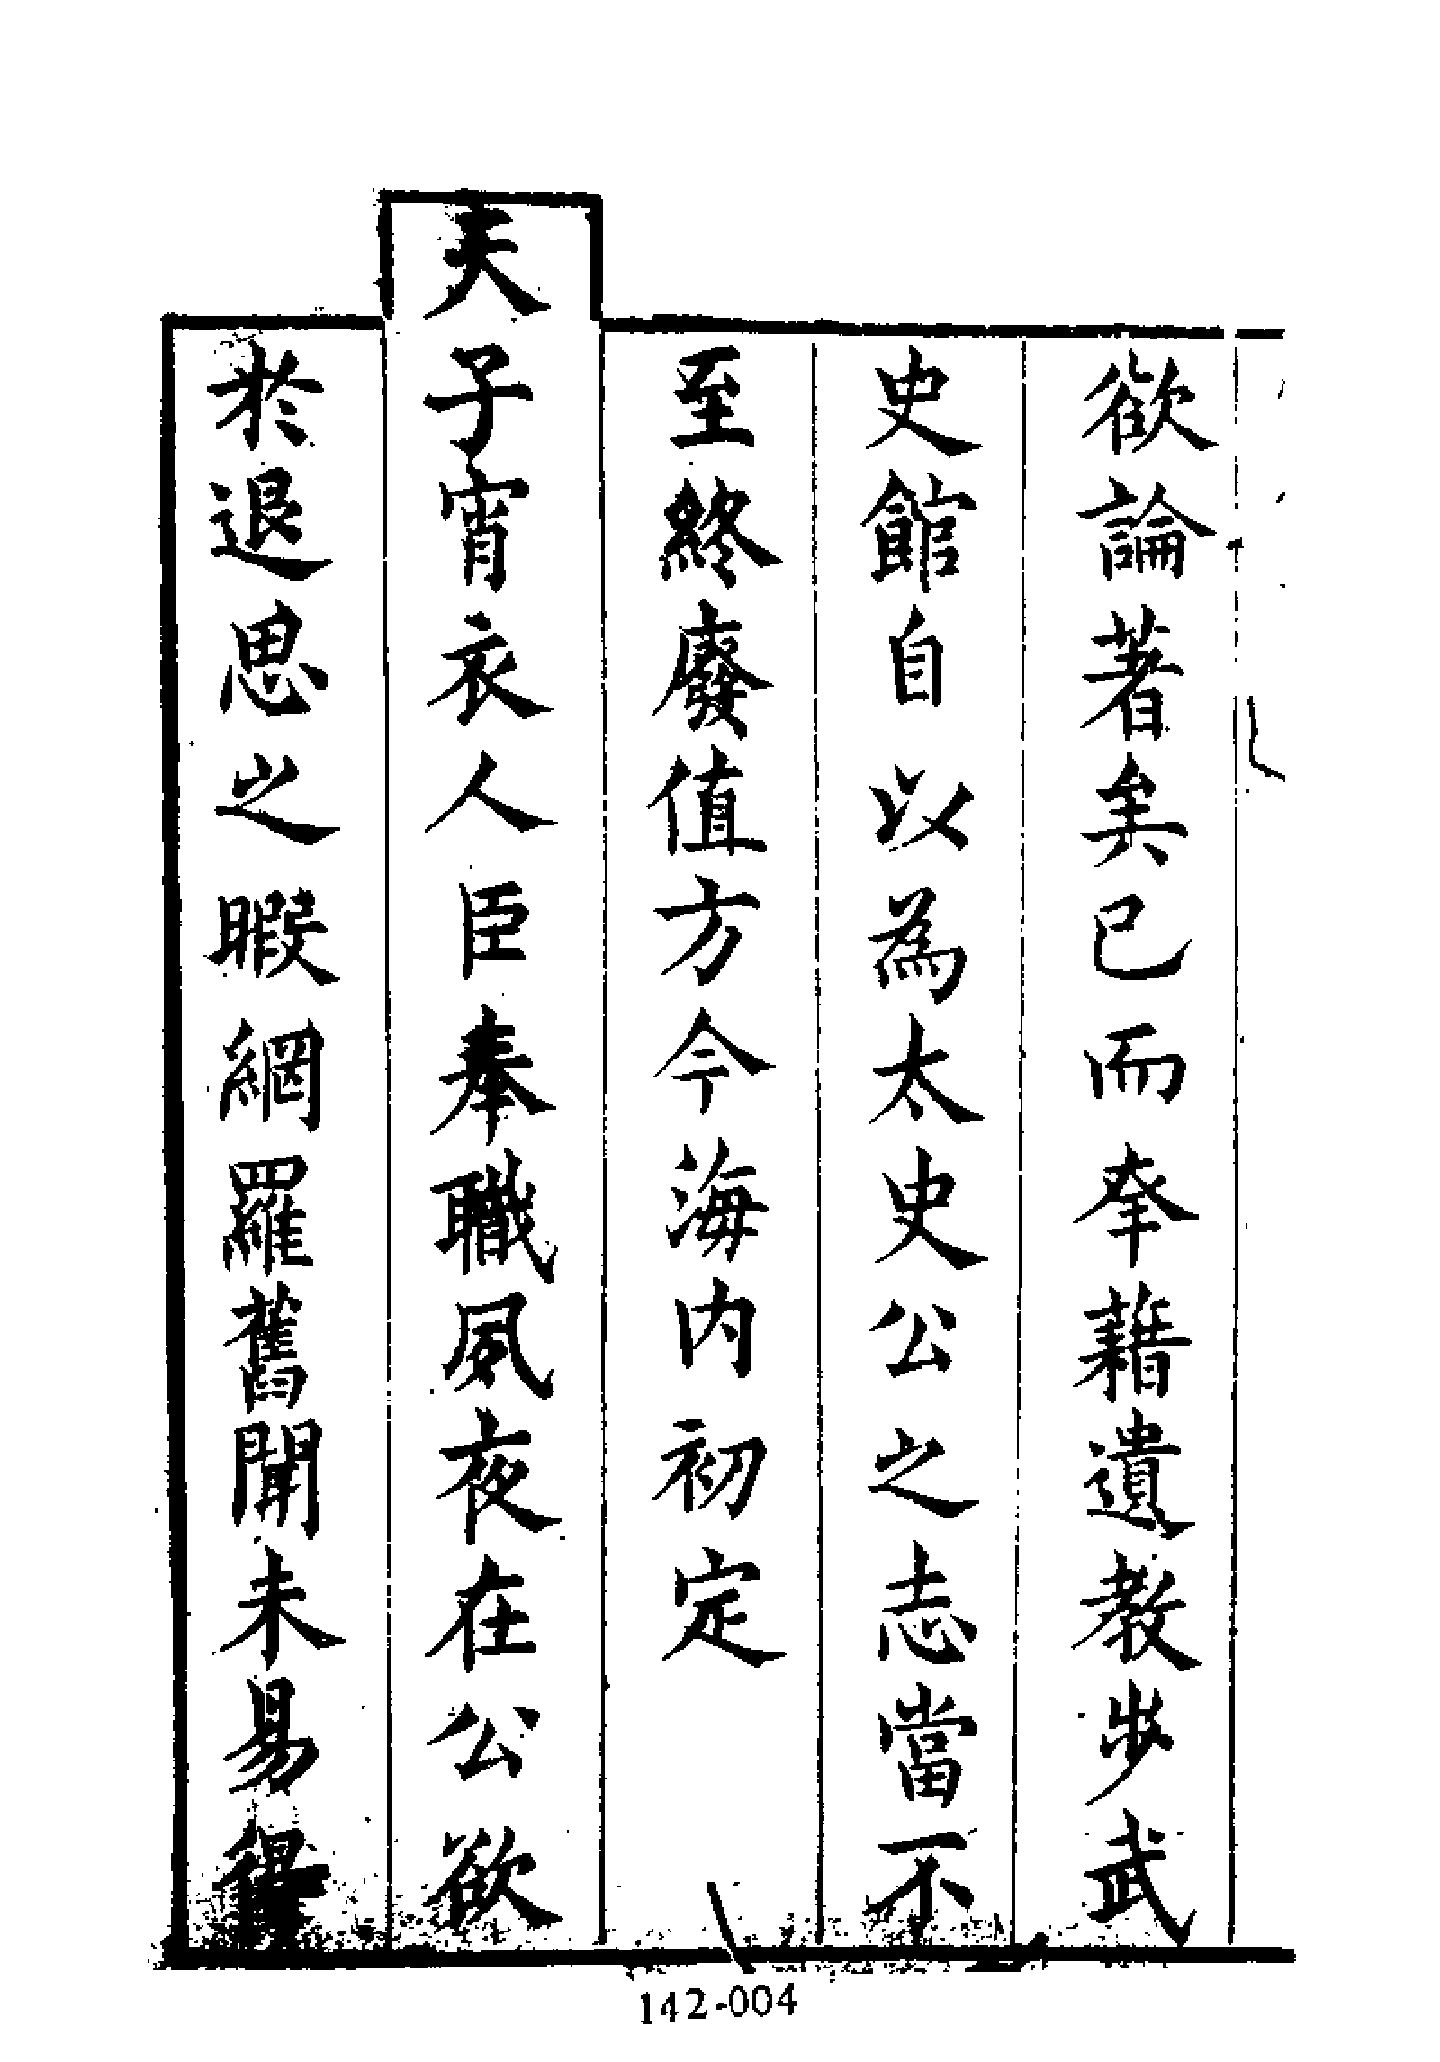 欲論著矣已而奉藉遺教步武
史館自以為太史公之志當不
至終廢值方今海内初定
天子宵衣人臣奉職夙夜在公欲
於退思之暇網羅舊聞未易
142-004